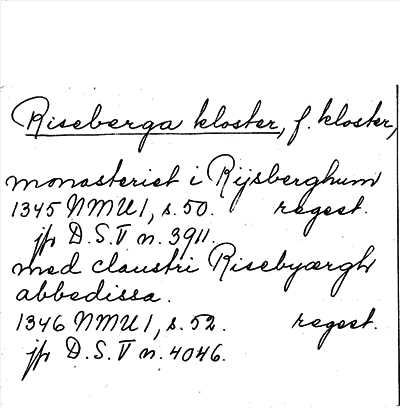 Riseberga kloster, f. kloster,
monasteriet i Rijsberghum
1345 NMU 1, s. 50. regest.
jfr D.S. V n. 3911.
med claustri Risebyærgh
abbedissa.
1346 NMU 1, s. 52. regest.
jfr D.S. V n. 4046.